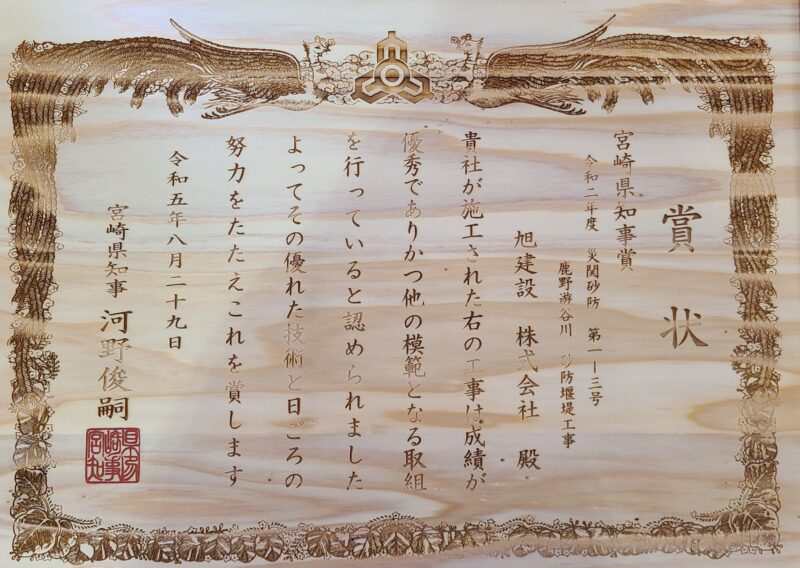 賞状
宮崎県知事賞
令和二年度 災関砂防 第一－三号
鹿野游谷川 砂防堰堤工事
旭建設 株式会社 殿
貴社が施工された右の工事は成績が
優秀でありかつ他の模範となる取組
を行っていると認められました
よってその優れた技術と日ごろの
努力をたたえこれを賞します
令和五年八月二十九日
宮崎県知事 河野俊嗣